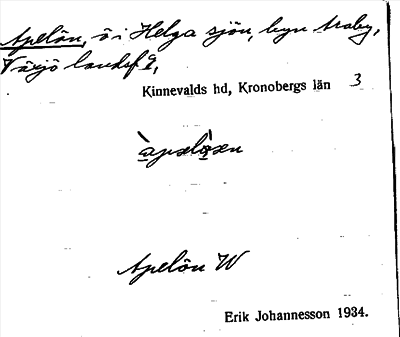 Apelön, ö i Helga sjön, byn Araby,
Växjö landsf
Kinnevalds hd, Kronobergs län 3
Apelön W
Erik Johannesson 1934.